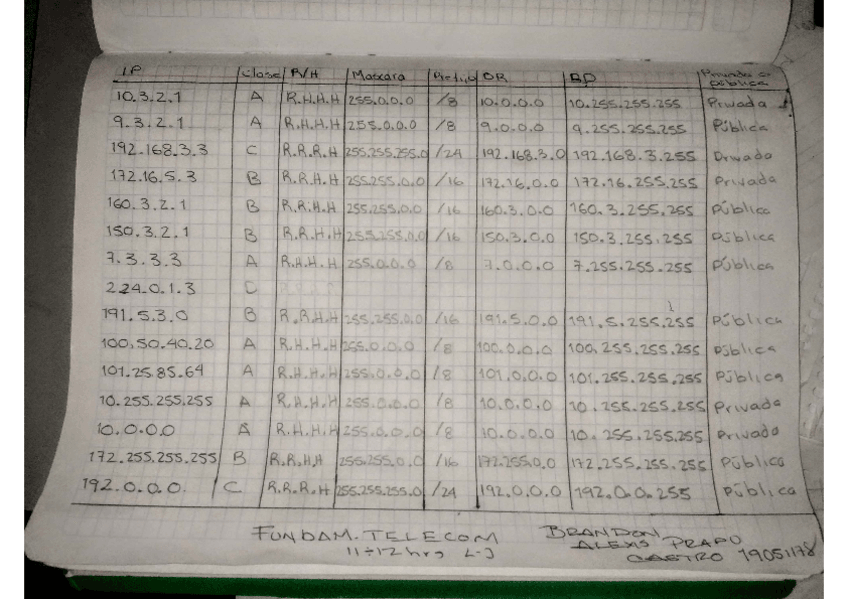 IP Clase R/H Mascara Prefijo DR BD Privada o pública
10.3.2.1 A R.H.H.H 255.0.0.0 /8 10.0.0.0 10.255.255.255 Privada
9.3.2.1 A R.H.H.H 255.0.0.0 /8 9.0.0.0 9.255.255.255 Pública
192.168.3.3 C R.R.R.H 255.255.255.0 /24 192.168.3.0 192.168.3.255 Privada
172.16.5.3 B R.R.H.H 255.255.0.0 /16 172.16.0.0 172.16.255.255 Privada
160.3.2.1 B R.R.H.H 255.255.0.0 /16 160.3.0.0 160.3.255.255 Pública
150.3.2.1 B R.R.H.H 255.255.0.0 /16 150.3.0.0 150.3.255.255 Pública
7.3.3.3 A R.H.H.H 255.0.0.0 /8 7.0.0.0 7.255.255.255 Pública
224.0.1.3 C
191.5.3.0 B R.R.H.H 255.255.0.0 /16 191.5.0.0 191.5.255.255 Pública
100.50.40.20 A R.H.H.H 255.0.0.0 /8 100.0.0.0 100.255.255.255 Pública
101.25.85.64 A R.H.H.H 255.0.0.0 /8 101.0.0.0 101.255.255.255 Pública
10.255.255.255 A R.H.H.H 255.0.0.0 /8 10.0.0.0 10.255.255.255 Privada
10.0.0.0 A R.H.H.H 255.0.0.0 /8 10.0.0.0 10.255.255.255 Privada
172.255.255.255 B R.R.H.H 255.255.0.0 /16 172.255.0.0 172.255.255.255 Pública
192.0.0.0. C R.R.R.H 255.255.255.0 /24 192.0.0.0 192.0.0.255 Pública
FUNDAM. TELECOM
11-12 hrs L-J
BRANDON
ALEXIS PRADO
CASTRO 19051178